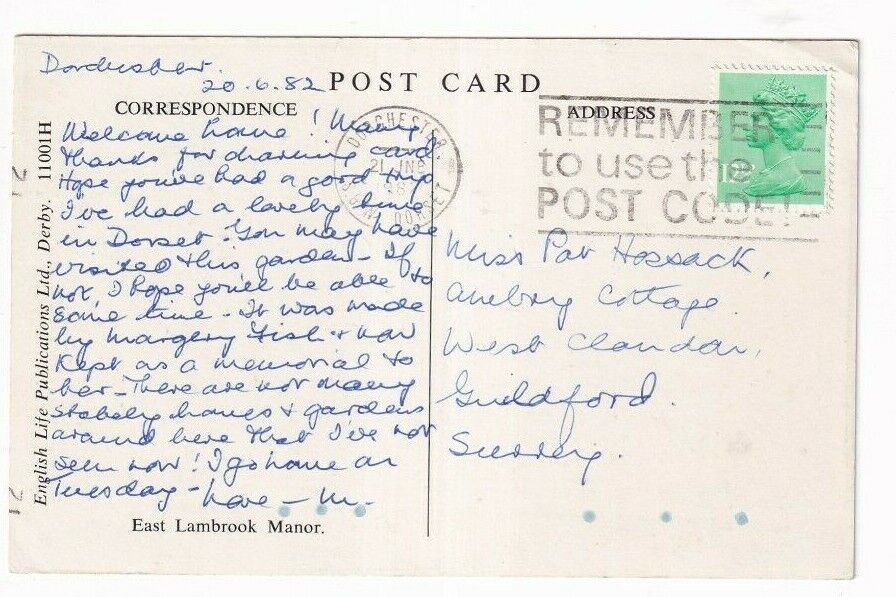 Dorchester.
20.6.82
POST CARD
CORRESPONDENCE
ADDRESS
Welcome home! Many
thanks for charming card.
Hope you've had a good trip
I've had a lovely time
in Dorset. You may have
visited this garden - If
not, I hope you'll be able to
some time - It was made
by Margery Fish & now
kept as a memorial to
her - There are not many
stately homes & gardens
around here that I've not
seen now! I go home on
Tuesday -
love - M -
East Lambrook Manor.
English Life Publications Ltd., Derby. 11001H
DORCHESTER
21 JNE
DORSET
REMEMBER
to use the
POST CODE!
Miss Pat Hossack,
Cottage
West Clandon,
Guildford.
Surrey.